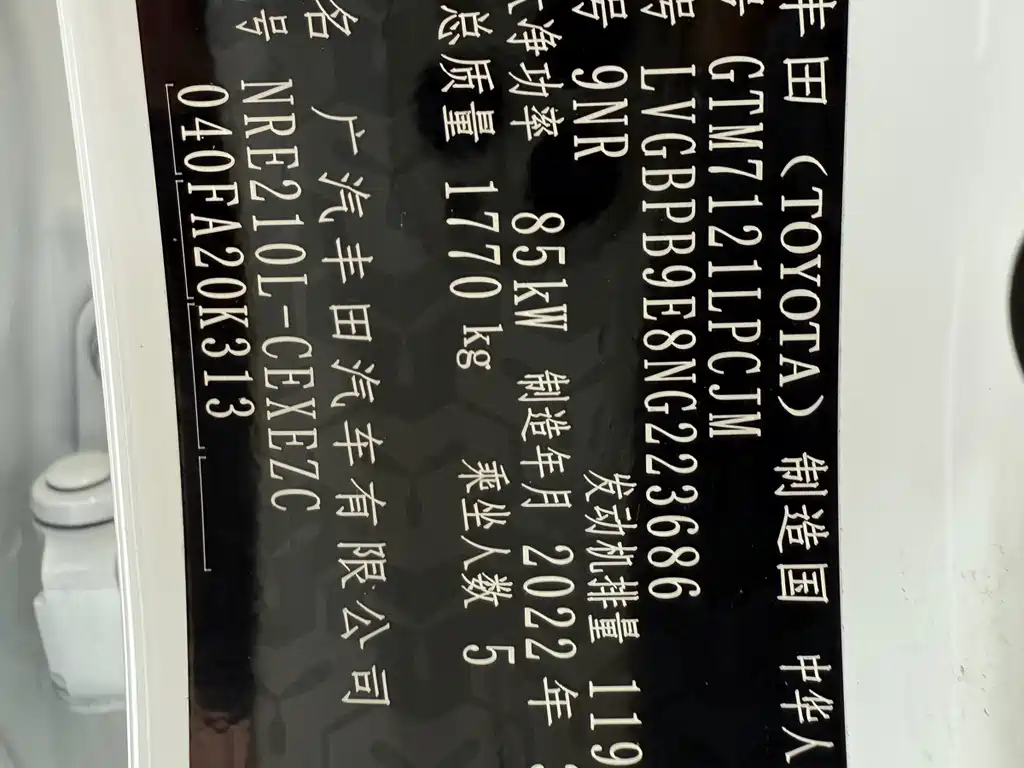 丰田 (TOYOTA) 制造国 中华人
号 GTM7121LPCJM
号 LVGBPB9E8NG223686
号 9NR 发动机排量 119
大净功率 85kW 制造年月 2022 年
总质量 1770 kg 乘坐人数 5
名 广汽丰田汽车有限公司
号 NRE210L-CEXEZC
040FA20K313